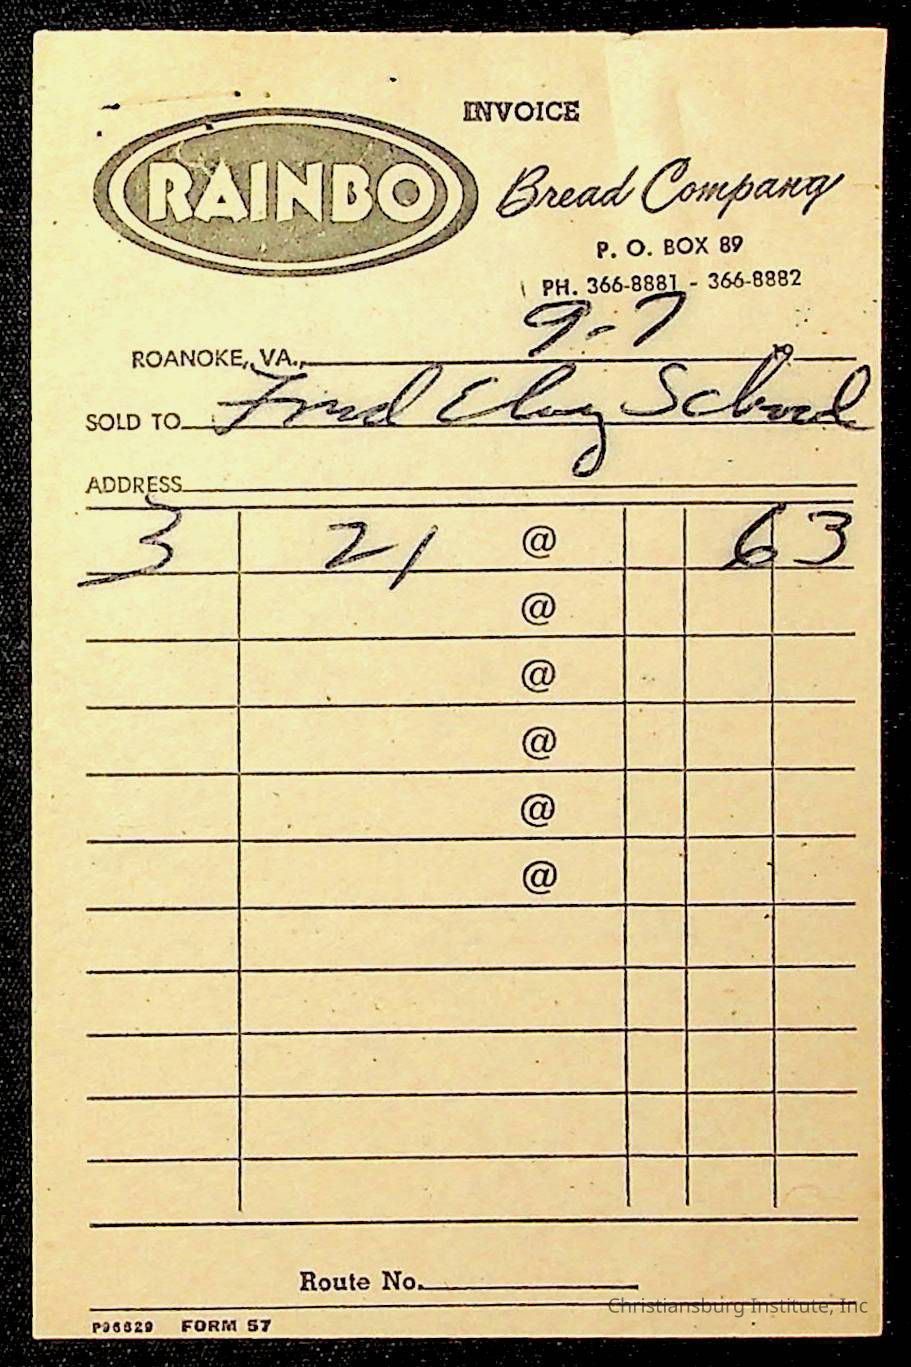 INVOICE
RAINBO
Bread Company
P. O. BOX 89
PH. 366-8881 - 366-8882
9-7
ROANOKE, VA., 19
SOLD TO School
ADDRESS
3 21 @ 63
@
@
@
@
@
Route No.
Christiansburg Institute, Inc
P96629 FORM 57